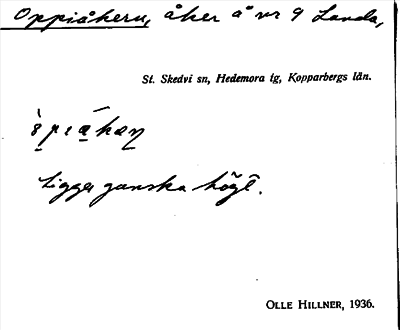 Oppiåkern, åker å nr 9 Landa,
St. Skedvi sn, Hedemora tg, Kopparbergs län.
Ligger ganska högt.
OLLE HILLNER, 1936.